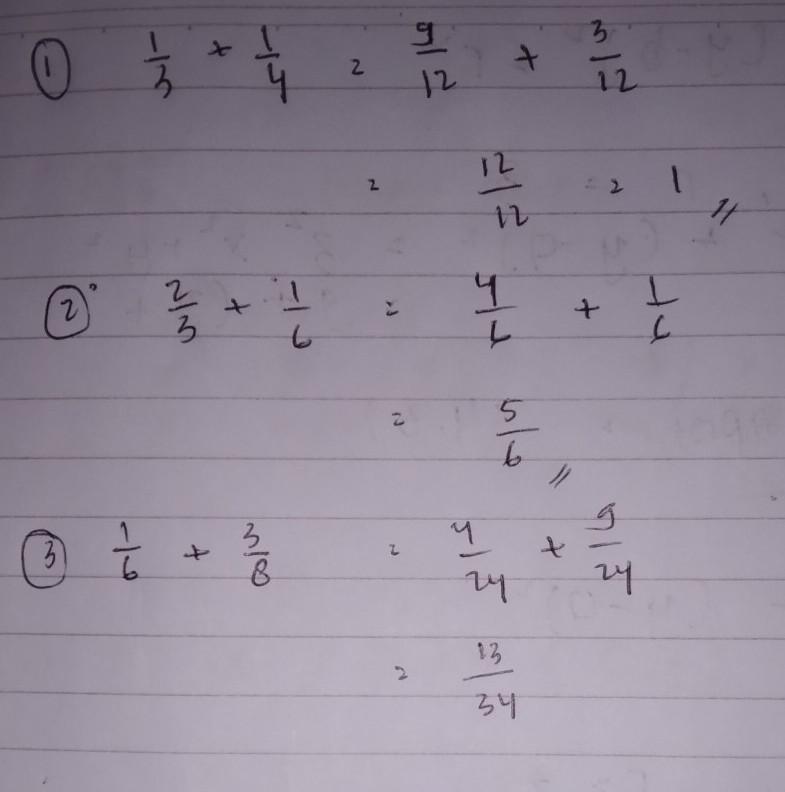 ① 1/3 + 1/4 = 9/12 + 3/12
= 12/12 = 1 //
② 2/3 + 1/6 = 4/6 + 1/6
= 5/6 //
③ 1/6 + 3/8 = 4/24 + 9/24
= 13/34